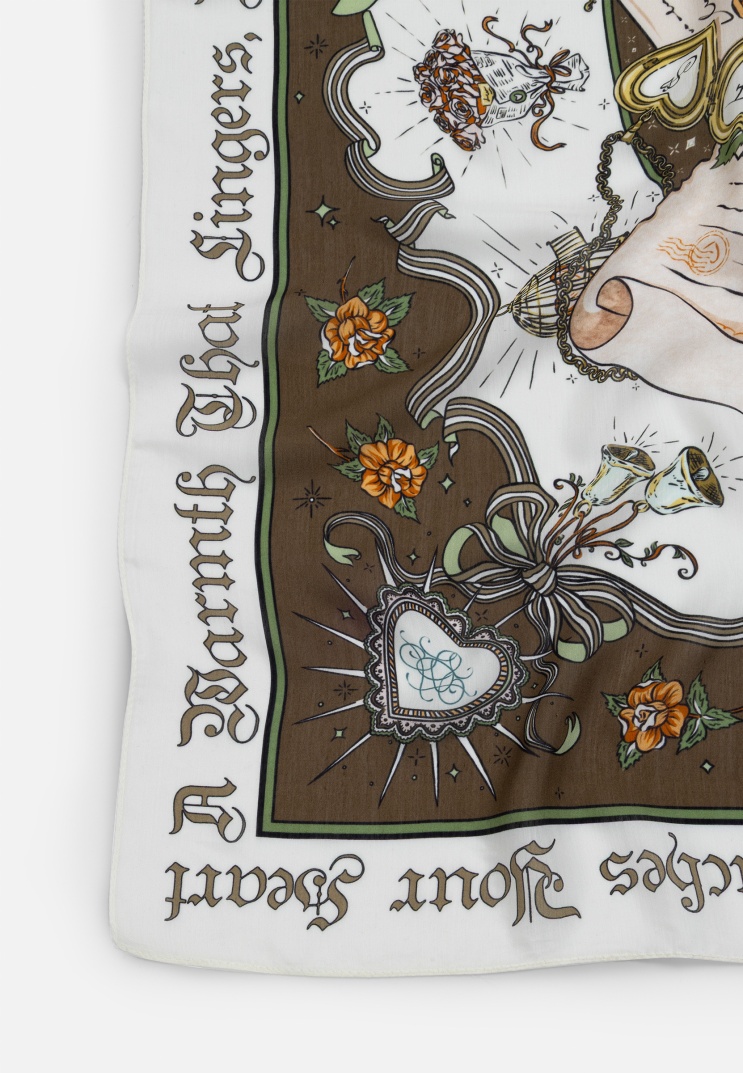 A Warmth That Lingers,
ches Your Heart